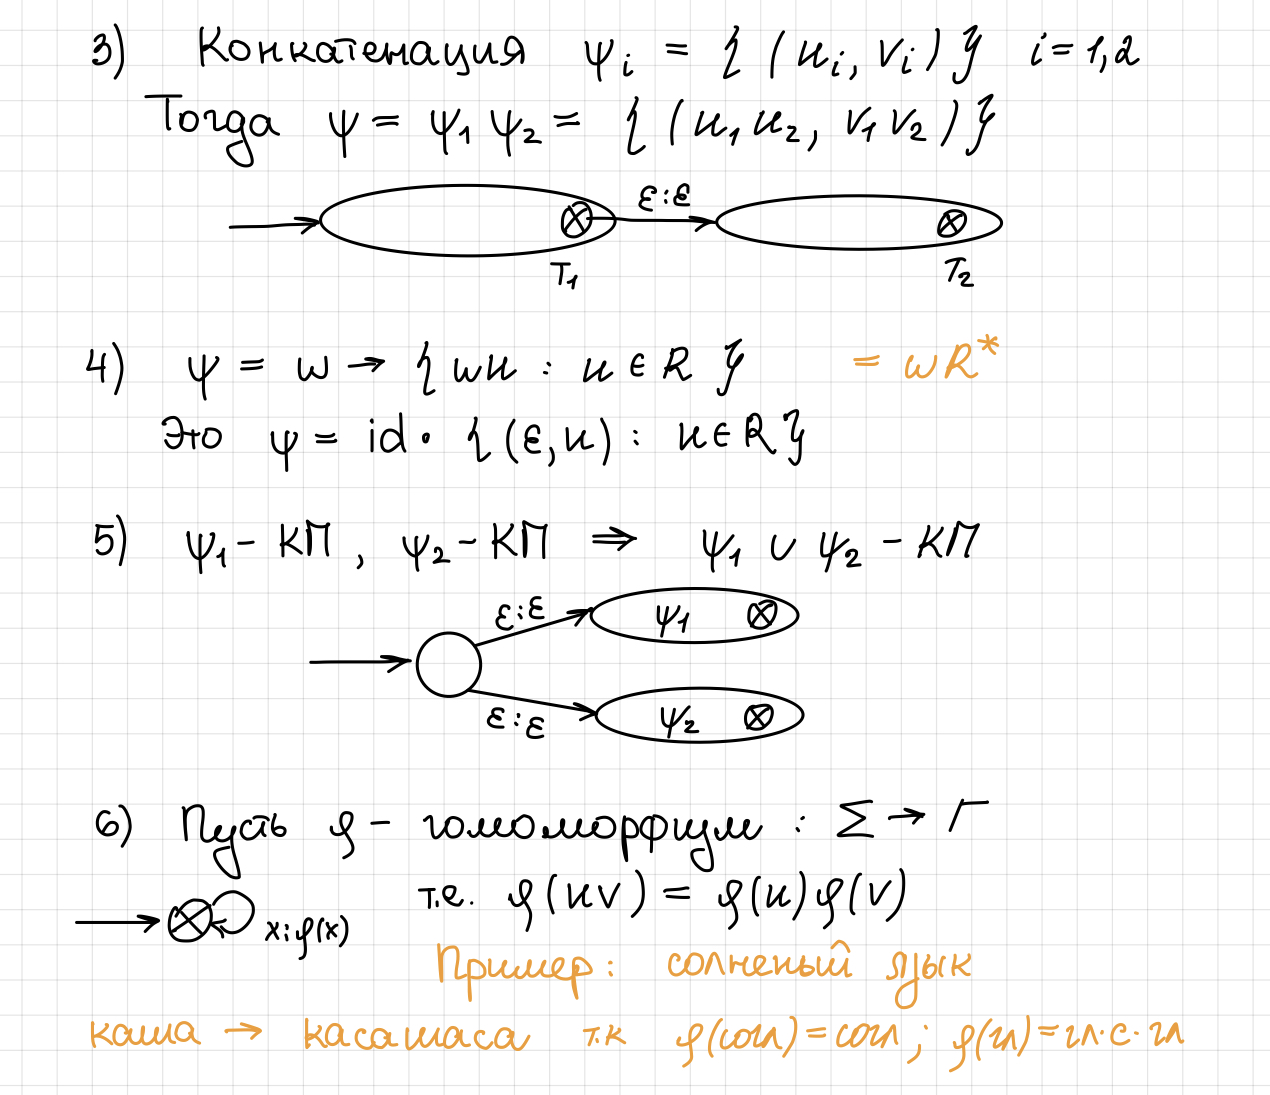 3) Конкатенация ψᵢ = { (uᵢ, vᵢ) } i = 1,2
Тогда ψ = ψ₁ψ₂ = { (u₁u₂, v₁v₂) }
ε:ε
T₁
T₂
4) ψ = w → { wu : u ∈ R } = wR*
Это ψ = id · { (ε, u) : u ∈ R }
5) ψ₁ – КП, ψ₂ – КП ⇒ ψ₁ ∪ ψ₂ – КП
ε:ε ψ₁
ε:ε ψ₂
6) Пусть φ – гомоморфизм : Σ → Γ
т.е. φ(uv) = φ(u)φ(v)
x:φ(x)
Пример: солненый язык
каша → касашаса т.к φ(согл) = согл ; φ(гл) = гл·с·гл